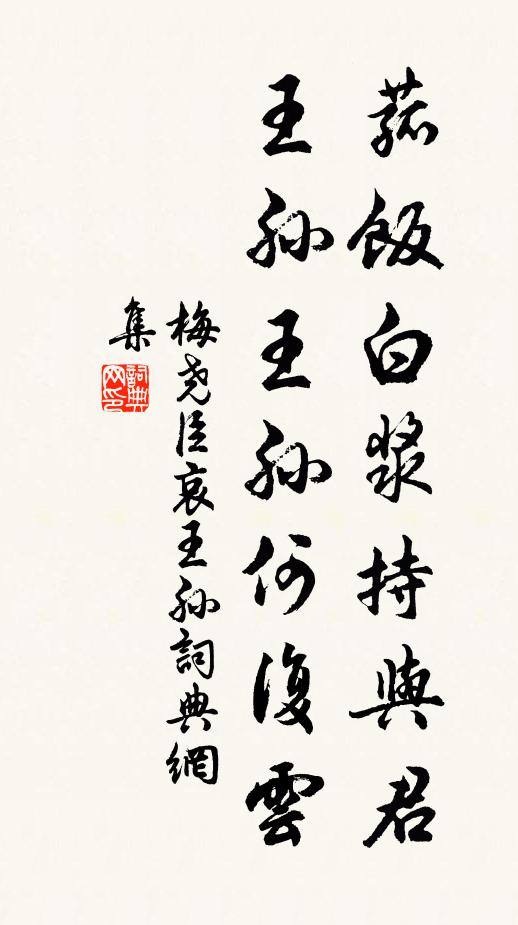 菰飯白漿持與君
王孫王孫何復雲
梅堯臣哀王孫詞典網
集
詞典網印